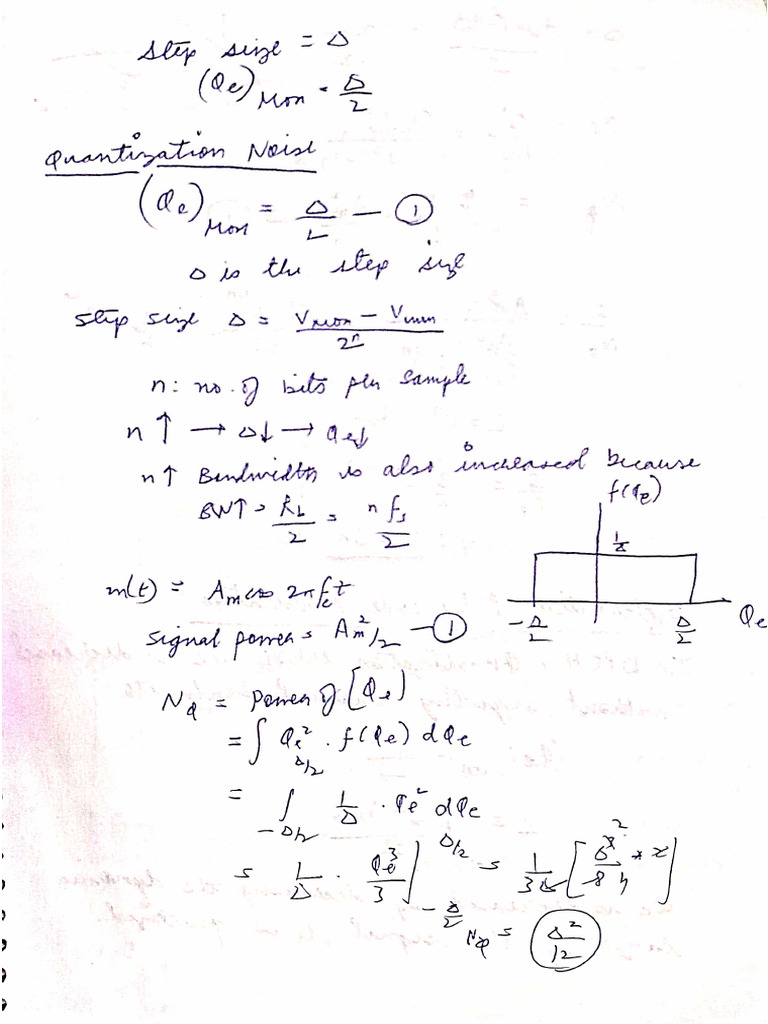 Step size = Δ
(Qe)Max = Δ/2
Quantization Noise
(Qe)Max = Δ/2 — ①
Δ is the step size
step size Δ = (Vmax − Vmin)/2ⁿ
n: no. of bits per sample
n ↑ → Δ↓ → Qe↓
n ↑ Bandwidth is also increased because
BW↑ = Rb/2 = n fs/2
f(Qe)
1/Δ
−Δ/2 Δ/2 Qe
m(t) = Am cos 2πfct
signal power = Am²/2 — ①
NQ = Power of [Qe]
= ∫ Qe² . f(Qe) dQe
= ∫_{−Δ/2}^{Δ/2} 1/Δ · Qe² dQe
= 1/Δ · Qe³/3 ]_{−Δ/2}^{Δ/2} = 1/3Δ [Δ³/8 4 * 2]
NQ = Δ²/12